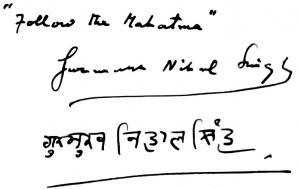 "Follow the Mahatma"
Gurmukh Nihal Singh
गुरमुख निहाल सिंह